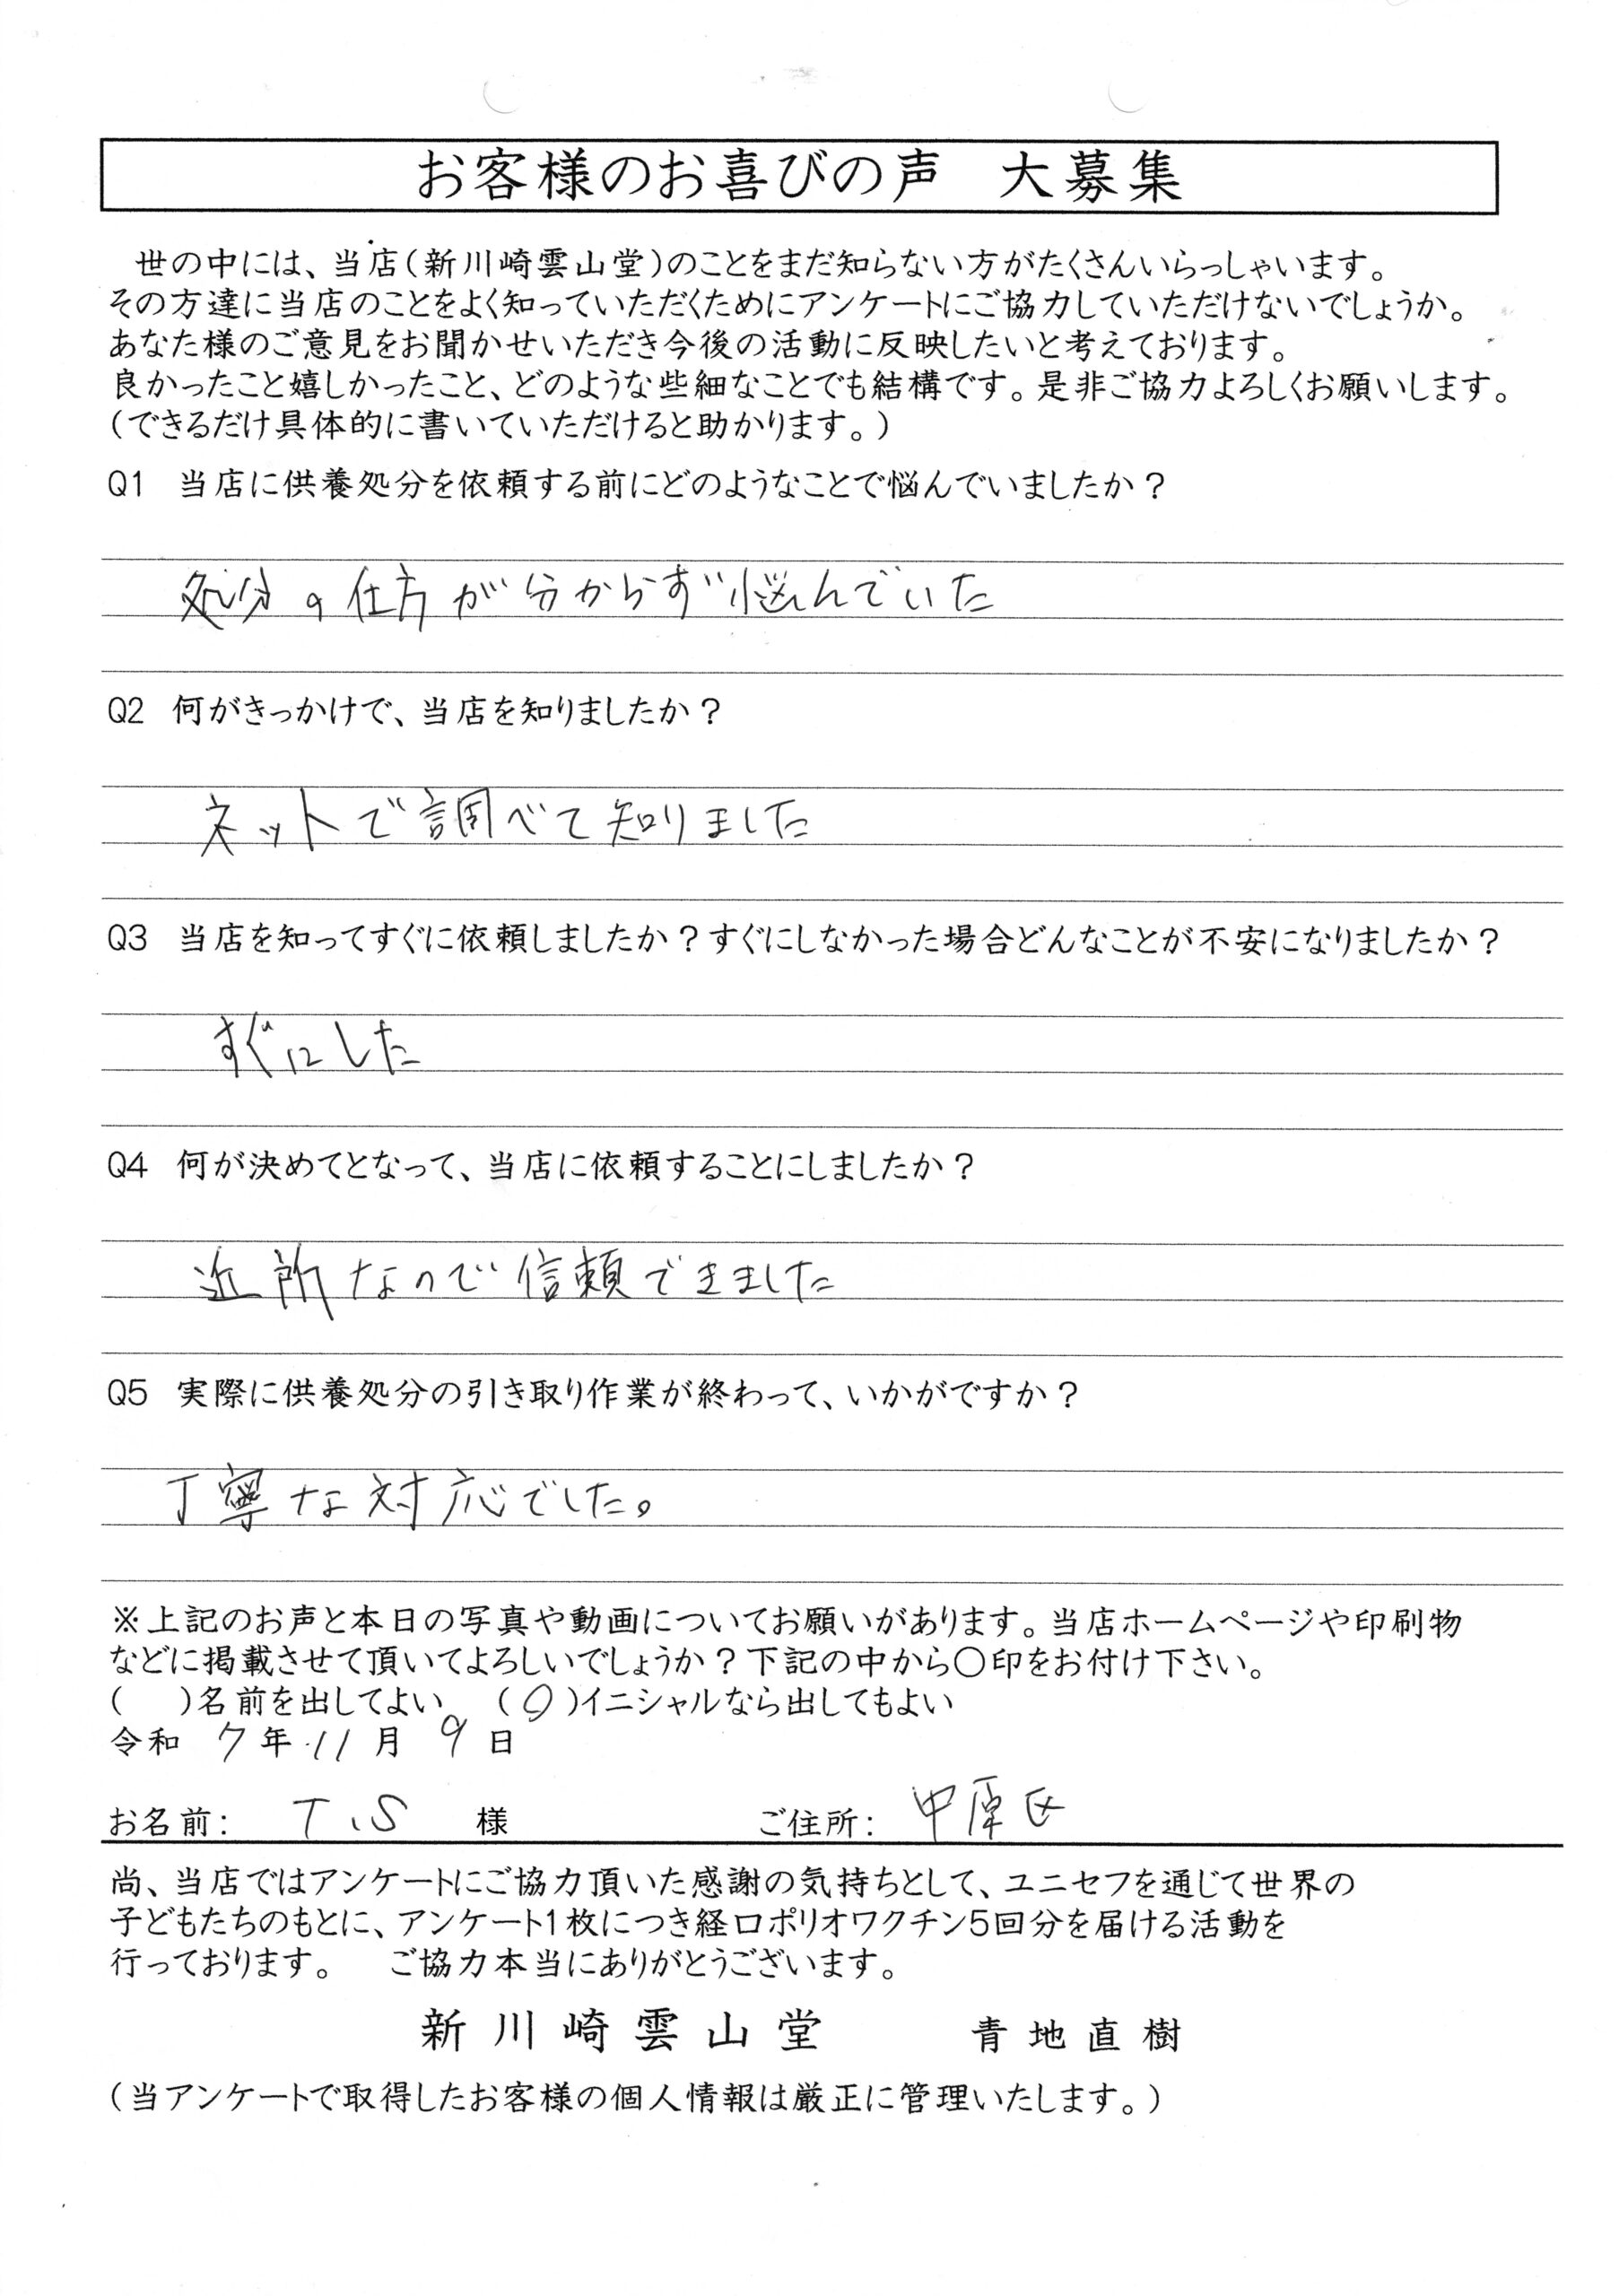 お客様のお喜びの声　大募集
世の中には、当店(新川崎雲山堂)のことをまだ知らない方がたくさんいらっしゃいます。
その方達に当店のことをよく知っていただくためにアンケートにご協力していただけないでしょうか。
あなた様のご意見をお聞かせいただき今後の活動に反映したいと考えております。
良かったこと嬉しかったこと、どのような些細なことでも結構です。是非ご協力よろしくお願いします。
(できるだけ具体的に書いていただけると助かります。)
Q1　当店に供養処分を依頼する前にどのようなことで悩んでいましたか？
処分の仕方が分からず悩んでいた
Q2　何がきっかけで、当店を知りましたか？
ネットで調べて知りました
Q3　当店を知ってすぐに依頼しましたか？すぐにしなかった場合どんなことが不安になりましたか？
すぐにした
Q4　何が決めてとなって、当店に依頼することにしましたか？
近所なので信頼できました
Q5　実際に供養処分の引き取り作業が終わって、いかがですか？
丁寧な対応でした。
※上記のお声と本日の写真や動画についてお願いがあります。当店ホームページや印刷物
などに掲載させて頂いてよろしいでしょうか？下記の中から〇印をお付け下さい。
(　　)名前を出してよい　(〇)イニシャルなら出してもよい
令和 7 年 11 月 9 日
お名前: T.S 様　ご住所: 中原区
尚、当店ではアンケートにご協力頂いた感謝の気持ちとして、ユニセフを通じて世界の
子どもたちのもとに、アンケート1枚につき経口ポリオワクチン5回分を届ける活動を
行っております。　ご協力本当にありがとうございます。
新川崎雲山堂　青地直樹
(当アンケートで取得したお客様の個人情報は厳正に管理いたします。)